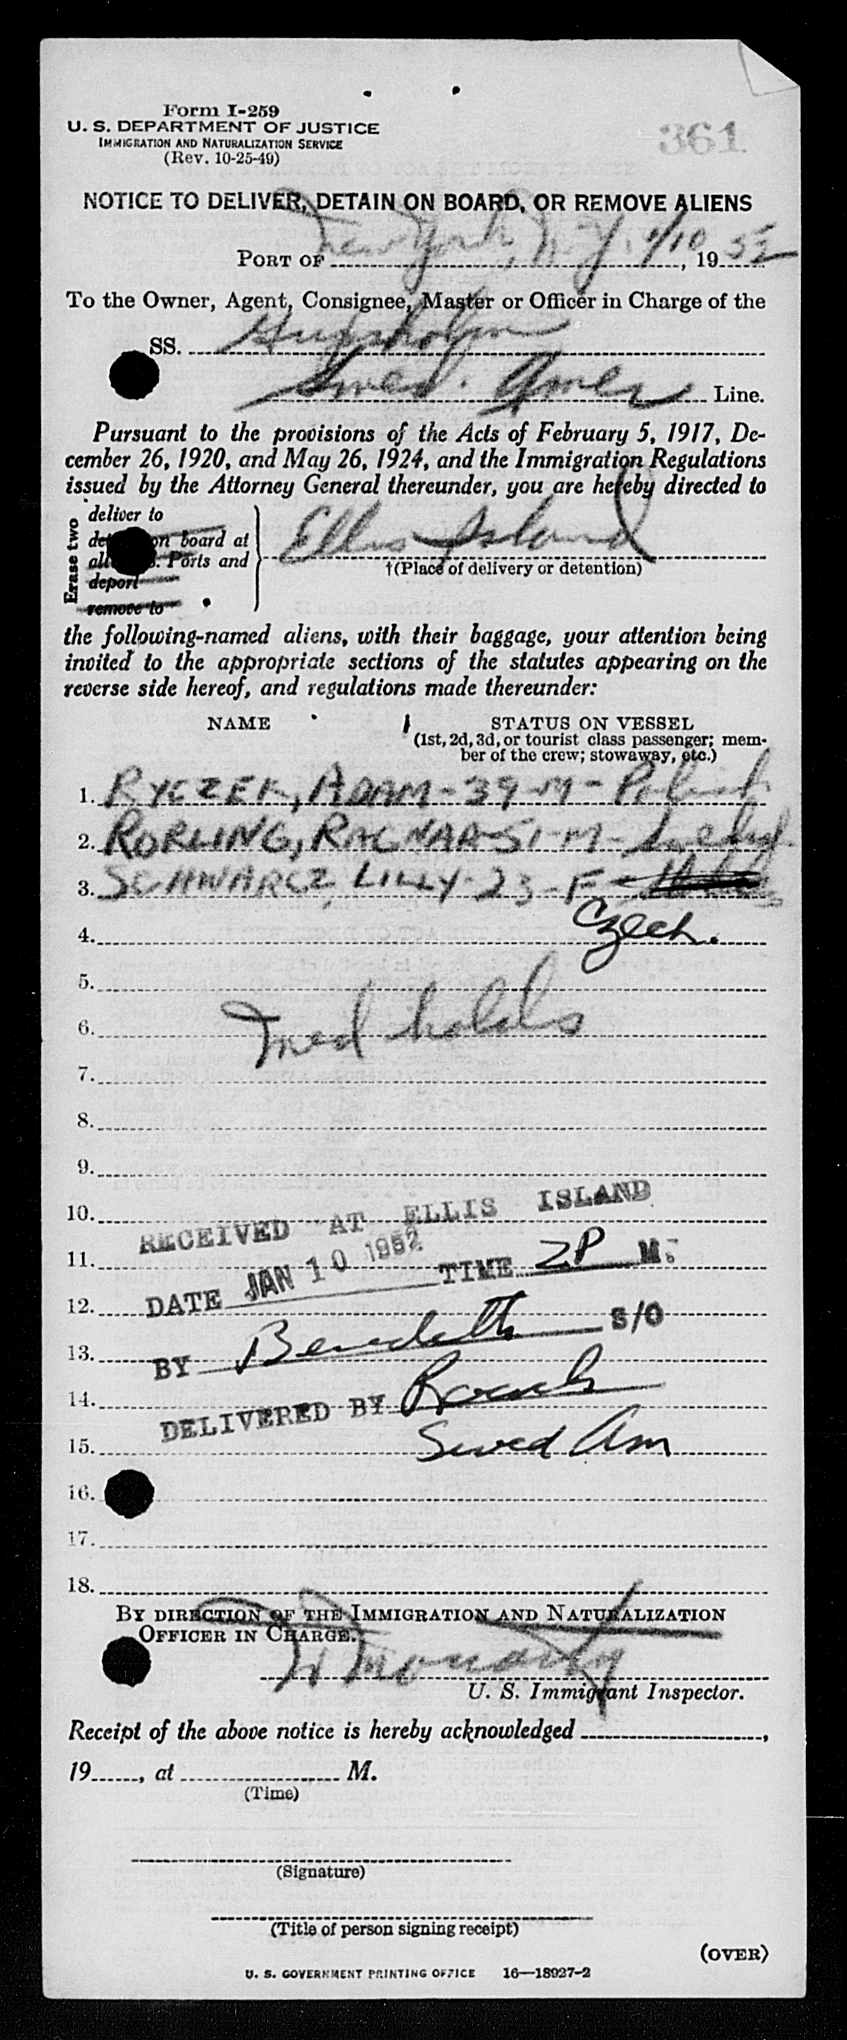 Form I-259
U. S. DEPARTMENT OF JUSTICE
IMMIGRATION AND NATURALIZATION SERVICE
(Rev. 10-25-49)
361
NOTICE TO DELIVER, DETAIN ON BOARD, OR REMOVE ALIENS
PORT OF New York, N.Y. 1/10, 19 52
To the Owner, Agent, Consignee, Master or Officer in Charge of the
SS. Gripsholm
Swed. Amer Line.
Pursuant to the provisions of the Acts of February 5, 1917, De-
cember 26, 1920, and May 26, 1924, and the Immigration Regulations
issued by the Attorney General thereunder, you are hereby directed to
Erase two
deliver to
on board at
Ports and
deport
remove to
Ellis Island
†(Place of delivery or detention)
the following-named aliens, with their baggage, your attention being
invited to the appropriate sections of the statutes appearing on the
reverse side hereof, and regulations made thereunder:
NAME
STATUS ON VESSEL
(1st, 2d, 3d, or tourist class passenger; mem-
ber of the crew; stowaway, etc.)
1. RYCZEK, ADAM - 39 - M - Polish
2. RORLING, RAGNAR - 51 - M - Swedish
3. SCHWARCZ, LILLY - 23 - F -
4. Czech.
5.
6. Med holds
7.
8.
9.
10.
RECEIVED AT ELLIS ISLAND
11.
DATE JAN 10 1952 TIME 2P M.
12.
13.
BY Benedetti S/O
14.
DELIVERED BY
15. Swed Am
16.
17.
18.
BY DIRECTION OF THE IMMIGRATION AND NATURALIZATION
OFFICER IN CHARGE.
U. S. Immigrant Inspector.
Receipt of the above notice is hereby acknowledged ,
19 , at M.
(Time)
(Signature)
(Title of person signing receipt)
(OVER)
U. S. GOVERNMENT PRINTING OFFICE 16—18927-2